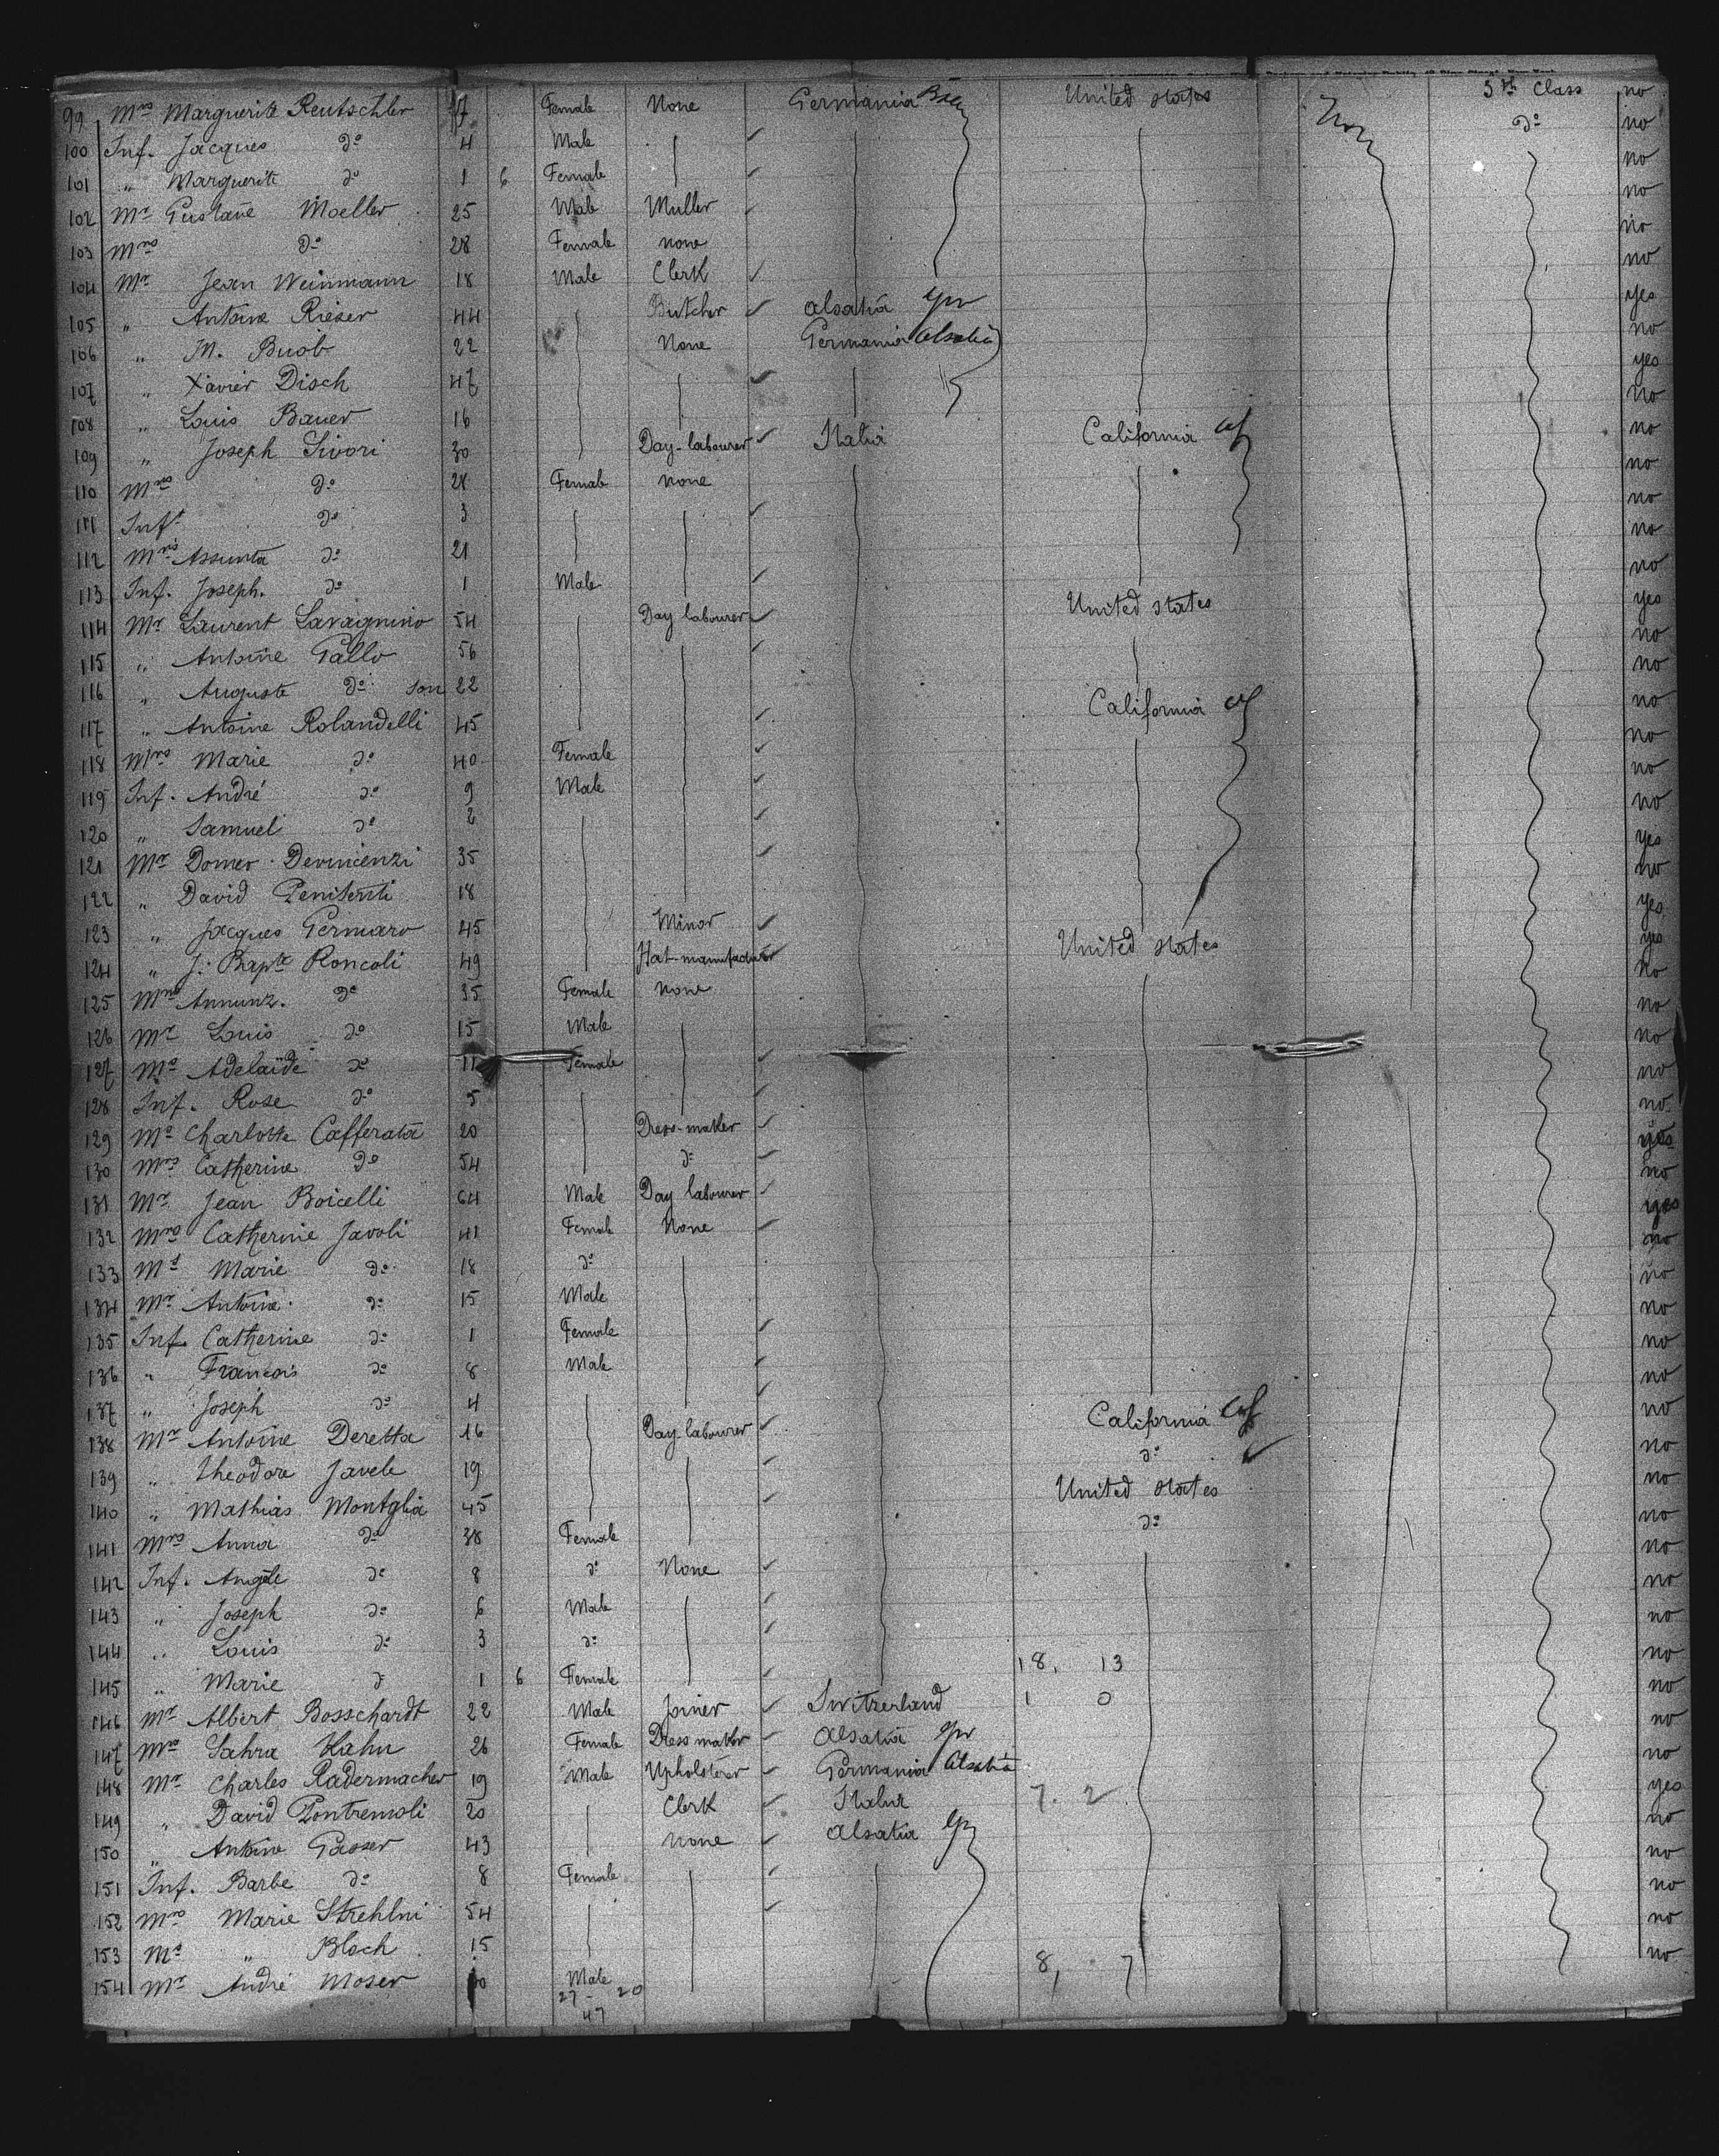 99 Mrs Marguerite Reutschler Female None Germania United States 3rd Class no
100 Inf. Jacques do 4 Male do no
101 „ Marguerite do 1 6 Female no
102 Mr Gustave Moeller 25 Male Muller no
103 Mrs do 28 Female none no
104 Mr Jean Weinmann 18 Male Clerk no
105 „ Antoine Rieser 44 Butcher Alsatia yes
106 „ M. Buob 22 None Germania (Alsatia) no
107 „ Xavier Disch 47 yes
108 „ Louis Bauer 16 no
109 „ Joseph Sivori 30 Day-labourer Italia California no
110 Mrs do 28 Female none no
111 Inft do 3 no
112 Mrs Assunta do 21 no
113 Inf. Joseph. do 1 Male no
114 Mr Laurent Lavagnino 54 Day labourer United States yes
115 „ Antoine Gallo 56 no
116 „ Auguste do son 22 no
117 „ Antoine Rolandelli 45 California no
118 Mrs Marie do 40 Female no
119 Inf. André do 9 Male no
120 „ Samuel do 2 no
121 Mr Domer Devincenzi 35 yes
122 „ David Penitenti 18 no
123 „ Jacques Germaro 45 Minor yes
124 „ J. Bapte Roncoli 49 Hat-manufacturer United States yes
125 Mrs Annunz. do 35 Female none no
126 Mr Louis do 15 Male no
127 Ms Adelaïde do 11 Female no
128 Inf. Rose do 5 no
129 Ms Charlotte Cafferata 20 Dress-maker no
130 Mrs Catherine do 54 do yes
131 Mr Jean Boicelli 64 Male Day labourer no
132 Mrs Catherine Javoli 41 Female None yes
133 Ms Marie do 18 do no
134 Mr Antoine do 15 Male no
135 Inf. Catherine do 1 Female no
136 „ Francois do 8 Male no
137 „ Joseph do 4 no
138 Mr Antoine Deretta 16 Day labourer California no
139 „ Theodore Javele 19 do no
140 „ Mathias Montglia 45 United States no
141 Mrs Anna do 38 Female do no
142 Inf. Angèle do 8 do None no
143 „ Joseph do 6 Male no
144 „ Louis do 3 do no
18, 13
145 „ Marie do 1 6 Female no
146 Mr Albert Bosschardt 22 Male Joiner Switzerland 1 0 no
147 Mrs Sahra Kahn 26 Female Dress maker Alsatia no
148 Mr Charles Radermacher 19 Male Upholsterer Germania Alsatia no
149 „ David Pontremoli 20 Clerk 7. 2 yes
150 „ Antoine Gasser 43 none Alsatia no
151 Inf. Barbe do 8 Female no
152 Mrs Marie Strehlni 54 no
153 Ms „ Bloch 15 no
154 Mr André Moser Male 8, 7 no
27 - 20
47